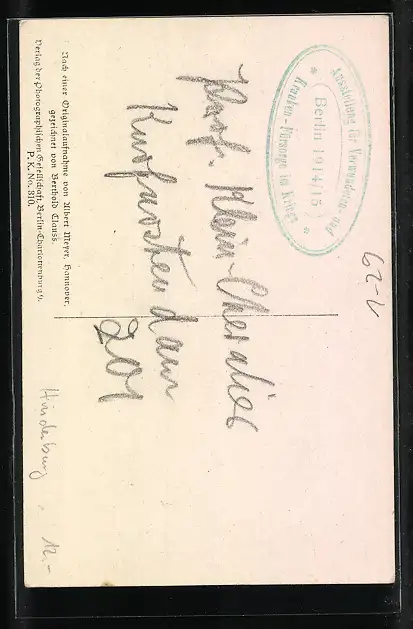 Ausstellung für Verwundeten- und
* (Berlin 1914/15) *
Kranken-Fürsorge im Kriege
Prof. Klein-Chevalier
Kurfürstendam
201
Nach einer Originalaufnahme von Albert Meyer, Hannover,
gezeichnet von Berthold Clauss.
Verlag der Photographischen Gesellschaft, Berlin-Charlottenburg 9.
P. K. No. 810.
Hindenburg - 12.-